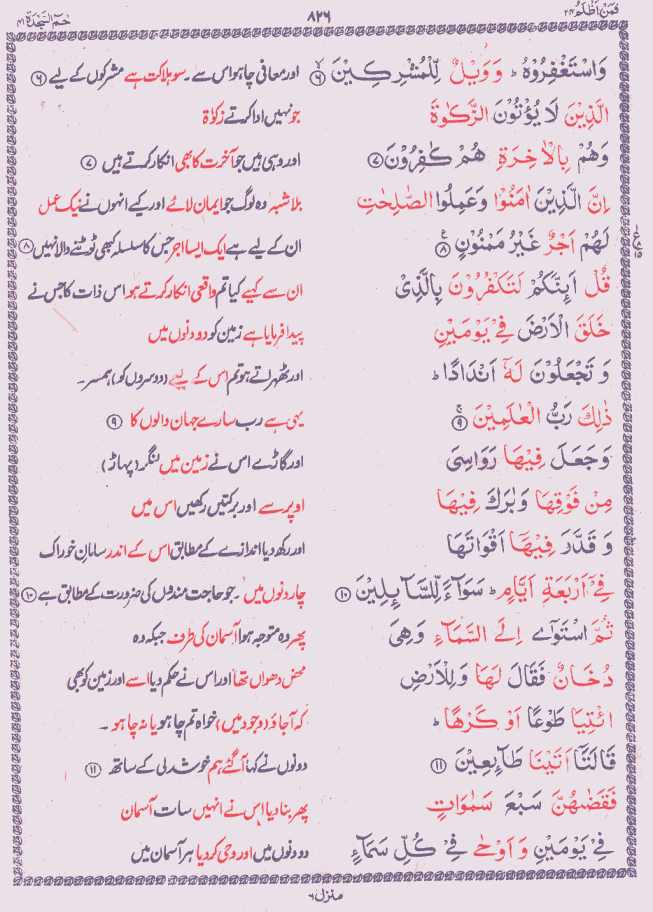 فَمَنْ اَظْلَمُ ۲۴ ۸۲۶ حٰمٓ السَّجْدَة ۴۱
وَاسْتَغْفِرُوْهُ ؕ وَوَيْلٌ لِّلْمُشْرِكِيْنَ ۶ اور معافی چاہو اس سے ۔ سو ہلاکت ہے مشرکوں کے لیے ۶
الَّذِيْنَ لَا يُؤْتُوْنَ الزَّكٰوةَ جو نہیں ادا کرتے زکوٰۃ
وَهُمْ بِالْاٰخِرَةِ هُمْ كٰفِرُوْنَ ۷ اور وہی ہیں جو آخرت کا بھی انکار کرتے ہیں ۷
اِنَّ الَّذِيْنَ اٰمَنُوْا وَعَمِلُوا الصّٰلِحٰتِ بلاشبہ وہ لوگ جو ایمان لائے اور کیے انہوں نے نیک عمل
لَهُمْ اَجْرٌ غَيْرُ مَمْنُوْنٍ ۸ ان کے لیے ہے ایک ایسا اجر جس کا سلسلہ کبھی ٹوٹنے والا نہیں ۸
قُلْ اَئِنَّكُمْ لَتَكْفُرُوْنَ بِالَّذِيْ ان سے کہیے کیا تم واقعی انکار کرتے ہو اس ذات کا جس نے
خَلَقَ الْاَرْضَ فِيْ يَوْمَيْنِ پیدا فرمایا ہے زمین کو دو دنوں میں
وَتَجْعَلُوْنَ لَهٗٓ اَنْدَادًا ؕ اور ٹھہراتے ہو تم اس کے لیے (دوسروں کو) ہمسر ۔
ذٰلِكَ رَبُّ الْعٰلَمِيْنَ ۹ یہی ہے رب سارے جہان والوں کا ۹
وَجَعَلَ فِيْهَا رَوَاسِيَ اور گاڑے اس نے زمین میں لنگر (پہاڑ)
مِنْ فَوْقِهَا وَبٰرَكَ فِيْهَا اوپر سے اور برکتیں رکھیں اس میں
وَقَدَّرَ فِيْهَآ اَقْوَاتَهَا اور رکھ دیا اندازے کے مطابق اس کے اندر سامانِ خوراک
فِيْٓ اَرْبَعَةِ اَيَّامٍ ؕ سَوَآءً لِّلسَّآئِلِيْنَ ۱۰ چار دنوں میں ۔ جو حاجت مندوں کی ضرورت کے مطابق ہے ۱۰
ثُمَّ اسْتَوٰٓى اِلَى السَّمَآءِ وَهِيَ پھر وہ متوجہ ہوا آسمان کی طرف جبکہ وہ
دُخَانٌ فَقَالَ لَهَا وَلِلْاَرْضِ محض دھواں تھا اور اس نے حکم دیا اسے اور زمین کو بھی
ائْتِيَا طَوْعًا اَوْ كَرْهًا ؕ کہ آجاؤ (وجود میں) خواہ تم چاہو یا نہ چاہو ۔
قَالَتَآ اَتَيْنَا طَآئِعِيْنَ ۱۱ دونوں نے کہا آگئے ہم خوش دلی کے ساتھ ۱۱
فَقَضٰهُنَّ سَبْعَ سَمٰوَاتٍ پھر بنا دیا اس نے انہیں سات آسمان
فِيْ يَوْمَيْنِ وَاَوْحٰى فِيْ كُلِّ سَمَآءٍ دو دنوں میں اور وحی کر دیا ہر آسمان میں
منزل ۶